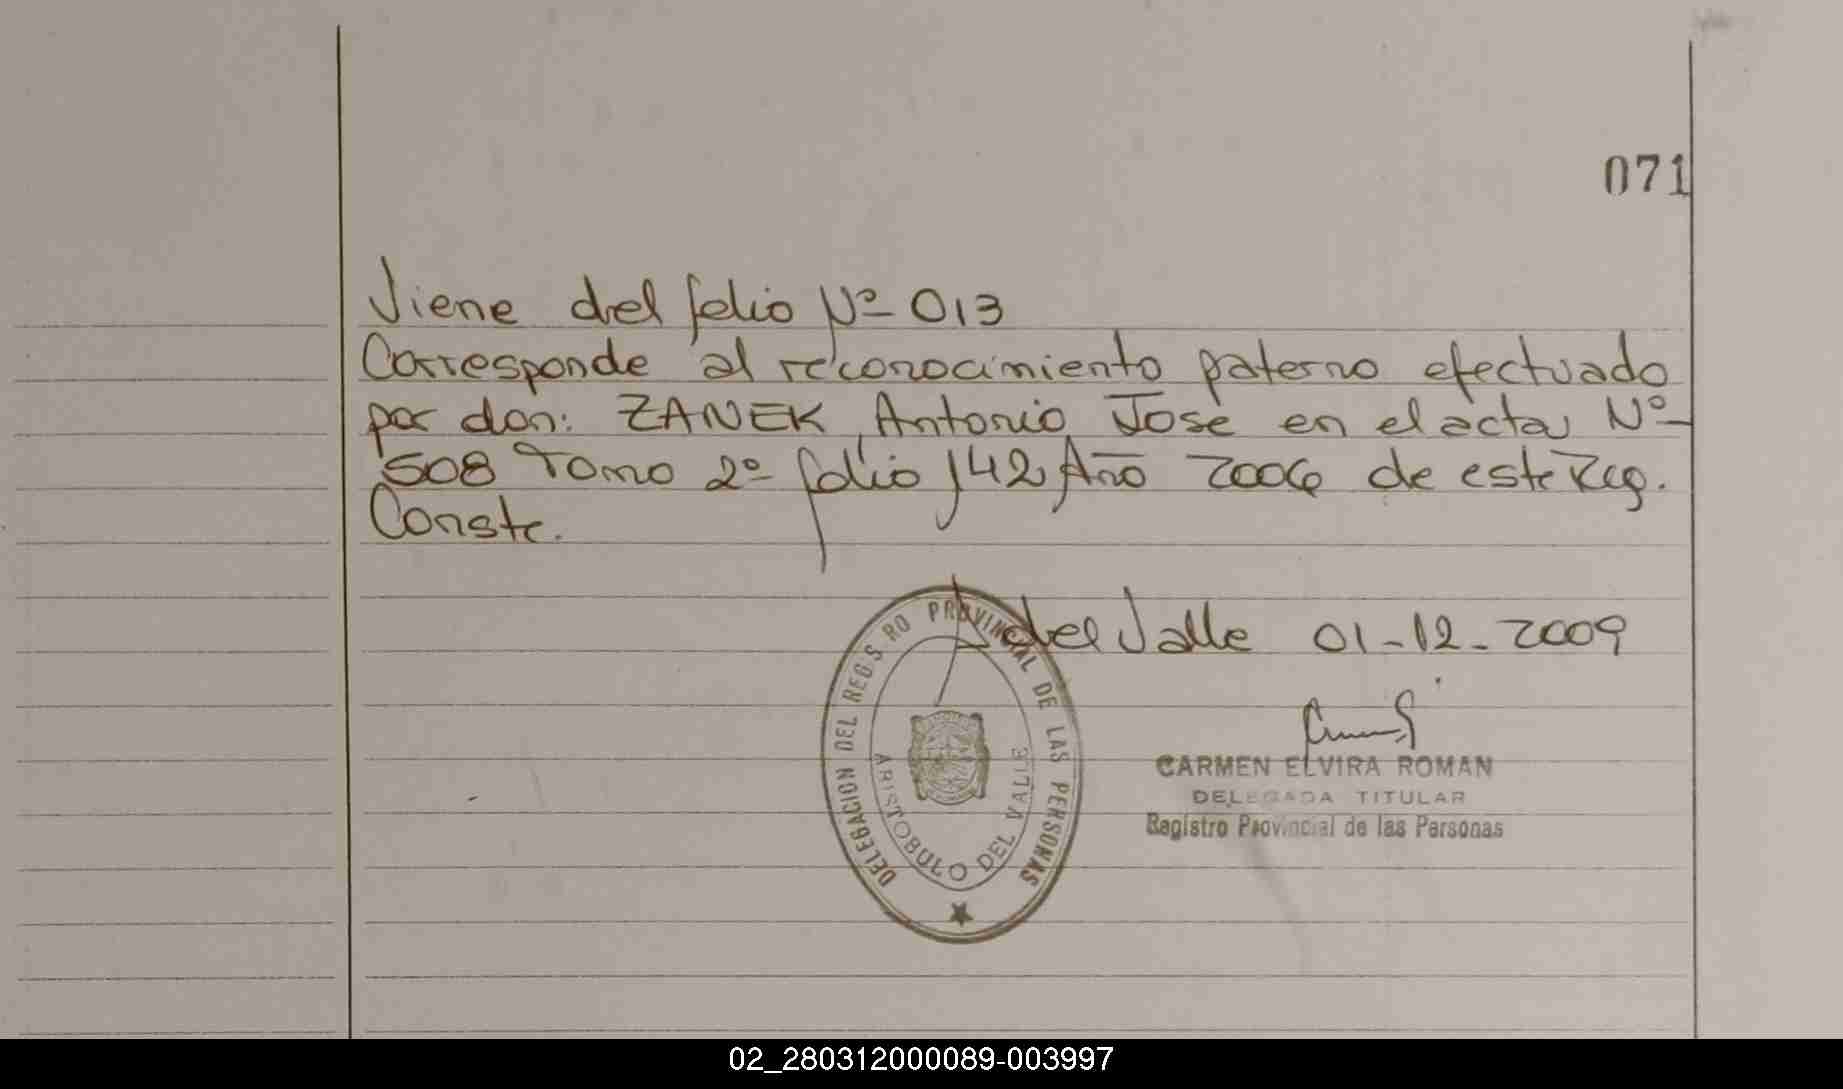 071
Viene del folio Nº 013
Corresponde al reconocimiento paterno efectuado
por don: ZANEK, Antonio Jose en el acta Nº
508 Tomo 2º folio 142 Año 2006 de este Reg.
Conste.
A del Valle 01-12-2009
DELEGACION DEL REGISTRO PROVINCIAL DE LAS PERSONAS
ARISTOBULO DEL VALLE
CARMEN ELVIRA ROMAN
DELEGADA TITULAR
Registro Provincial de las Personas
02_280312000089-003997